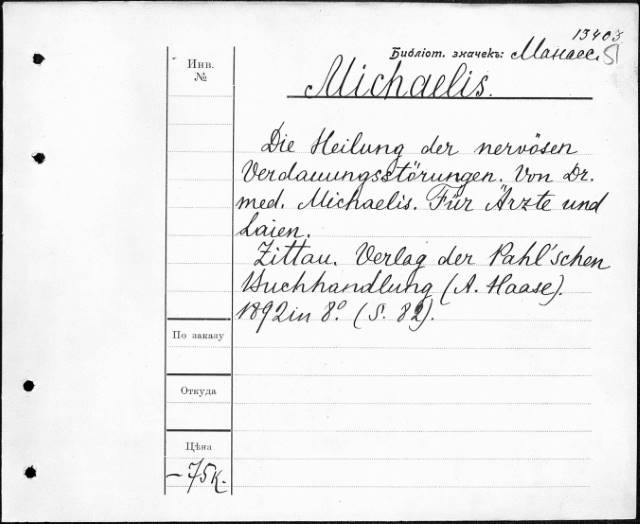 13403
Библіот. значекъ: Манасс. 51
Michaelis.
Инв.
№
Die Heilung der nervösen
Verdauungsstörungen. Von Dr.
med. Michaelis. Für Ärzte und
Laien.
Zittau. Verlag der Pahl'schen
Buchhandlung (A. Haase).
1892 in 8°. (S. 82).
По заказу
Откуда
Цѣна
– 75к.